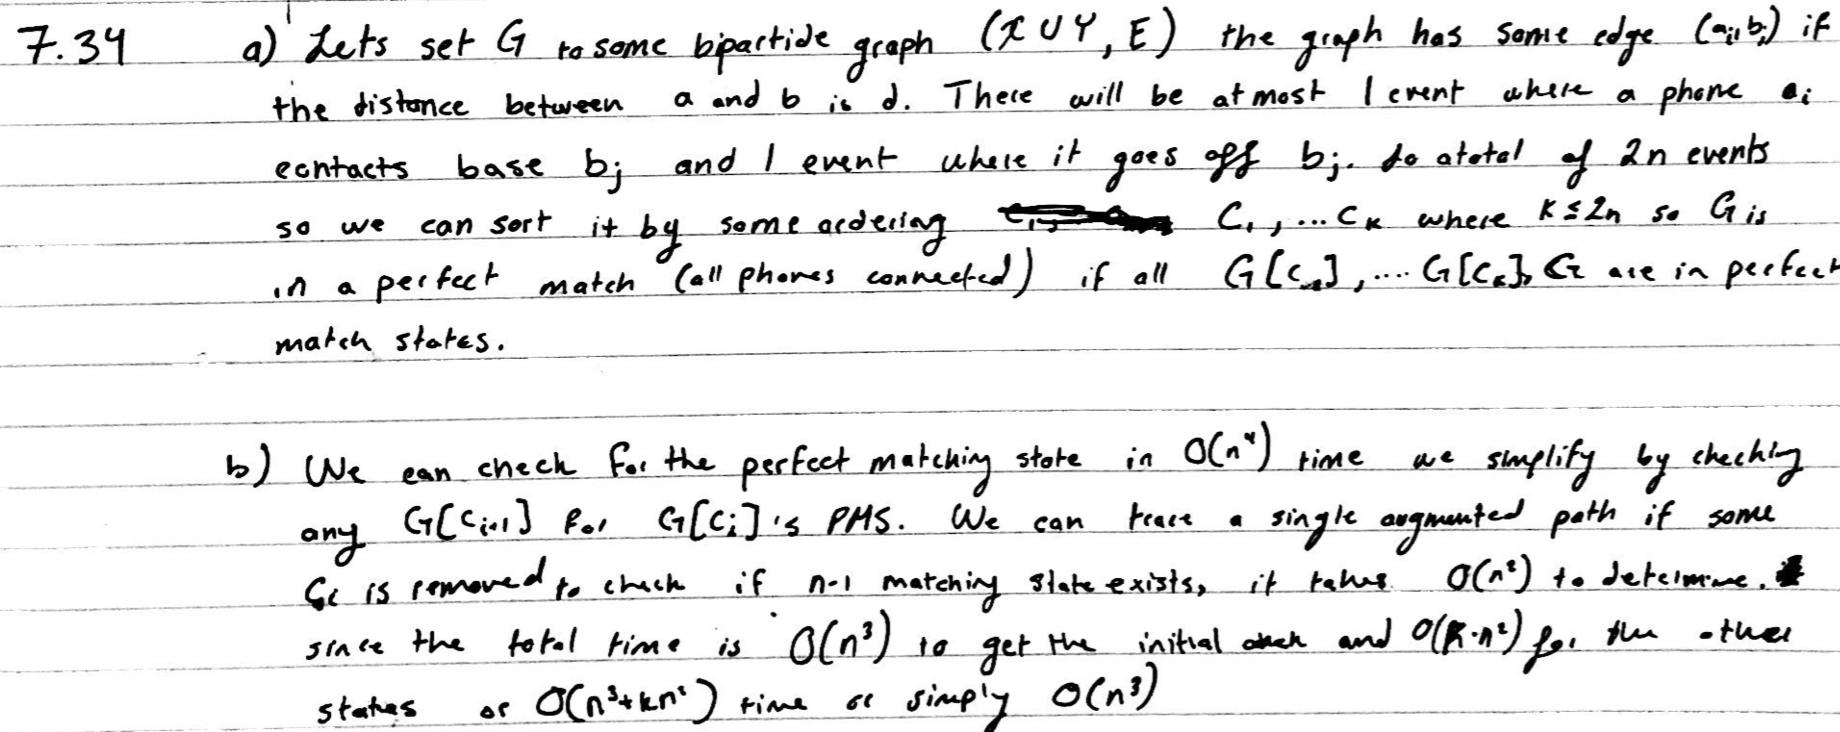 7.34 a) Lets set G to some bipartide graph (X U Y, E) the graph has some edge (ai, bj) if
the distance between a and b is d. There will be at most 1 event where a phone ai
contacts base bj and 1 event where it goes off bj. So a total of 2n events
so we can sort it by some ordering C1, ... Ck where K ≤ 2n so G is
in a perfect match (all phones connected) if all G[C1], .... G[Ck], G are in perfect
match states.
b) We can check for the perfect matching state in O(n⁴) time we simplify by checking
any G[Ci+1] for G[Ci]'s PMS. We can trace a single augmented path if some
is removed to check if n-1 matching state exists, it takes O(n²) to determine.
since the total time is O(n³) to get the initial and O(K·n²) for the other
states or O(n³+kn²) time or simply O(n³)